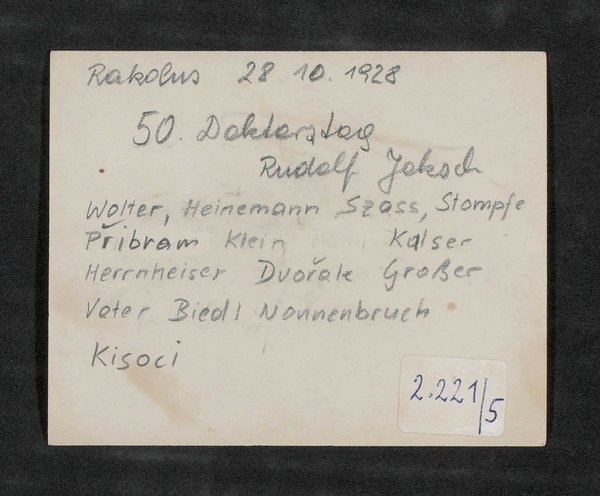 Rakolus 28 10. 1928
50. Doktorstag
Rudolf Jaksch
Walter, Heinemann Szass, Stompfe
Přibram Klein Kalser
Herrnheiser Dvořak Großer
Vater Biedl Nonnenbruch
Kisoci
2.221/5